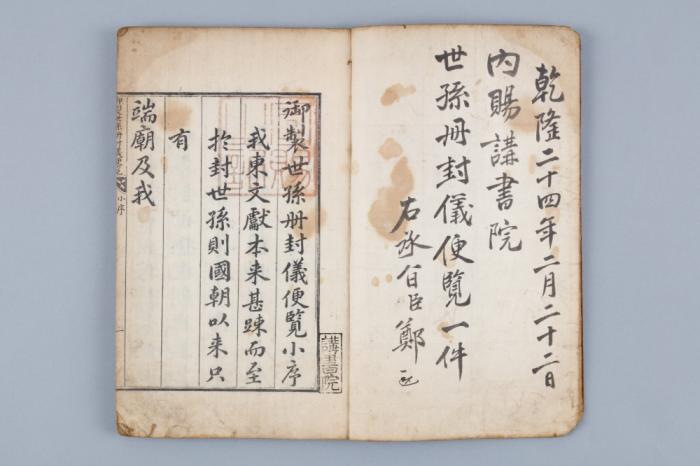 乾隆二十四年二月二十二日
內賜講書院
世孫冊封儀便覽一件
右承旨臣鄭
講書院
御製世孫冊封儀便覽小序
我東文獻本来甚踈而至
於封世孫則國朝以来只
有
端廟及我
小序